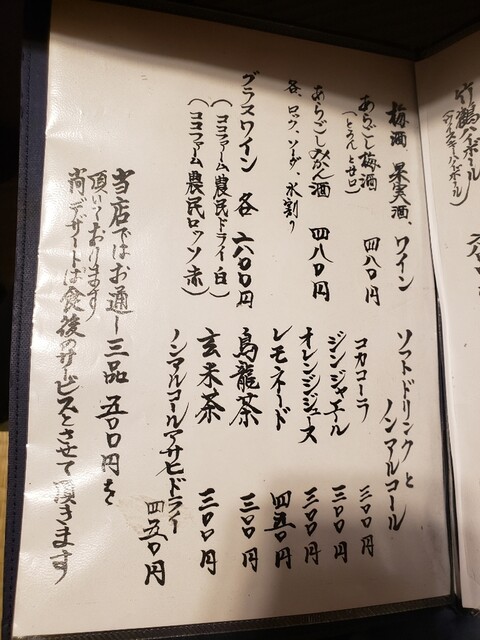 竹鶴ハイボール
(ウイスキーハイボール)
梅酒、果実酒、ワイン
あらごし梅酒 四八〇円
(とろんとサロ)
あらごしみかん酒 四八〇円
各、ロック、ソーダ、水割り
グラスワイン 各 六八〇円
(ココファーム農民ドライ 白)
(ココファーム農民ロッソ 赤)
ソフトドリンクと
ノンアルコール
コカコーラ 三〇〇円
ジンジャエール 三〇〇円
オレンジジュース 三〇〇円
レモネード 四五〇円
烏龍茶 三〇〇円
玄米茶 三〇〇円
ノンアルコールアサヒドライ
四五〇円
当店ではお通し三品 五〇〇円を
頂いております
尚デザートは食後のサービスとさせて頂きます